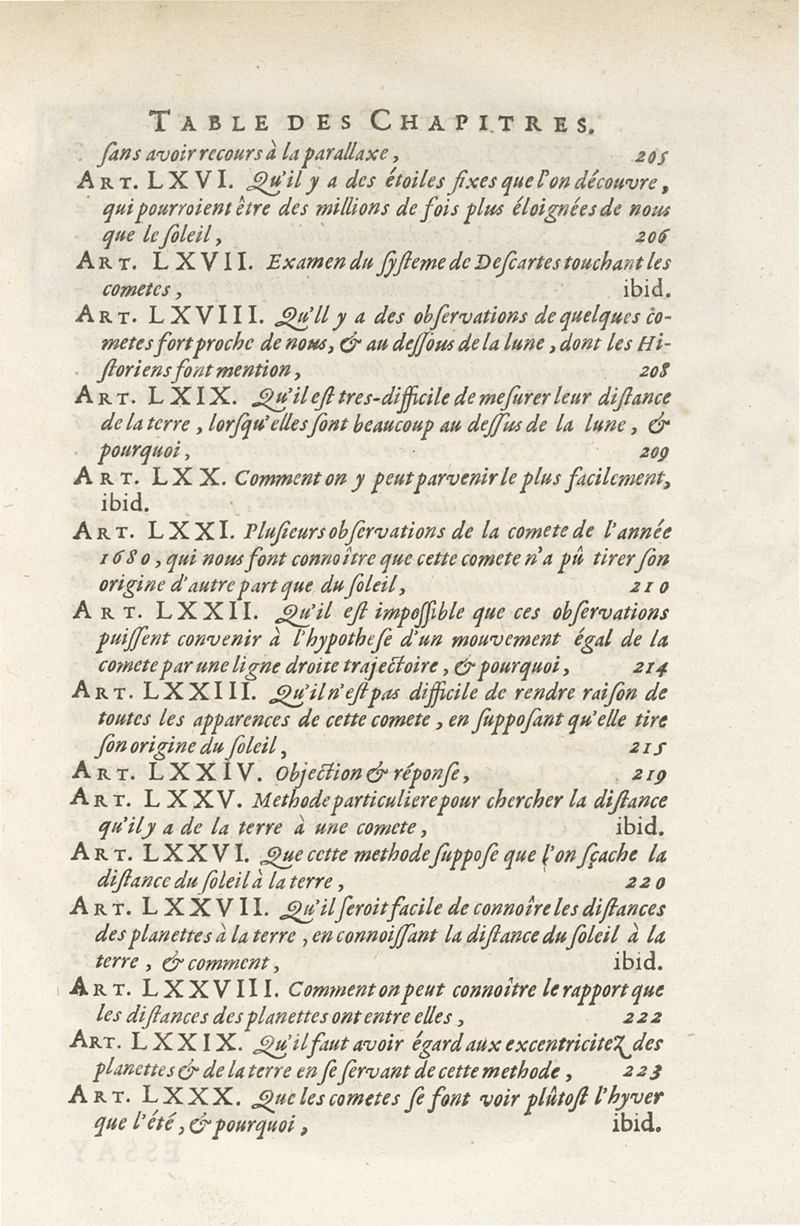 TABLE DES CHAPITRES.
ſans avoir recours à la parallaxe, 205
ART. LXVI. Qu'il y a des étoiles fixes que l'on découvre,
qui pourroient être des millions de fois plus éloignées de nous
que le ſoleil, 206
ART. LXVII. Examen du ſyſteme de Deſcartes touchant les
cometes, ibid.
ART. LXVIII. Qu'Il y a des obſervations de quelques co-
metes fort proche de nous, & au deſſous de la lune, dont les Hi-
ſtoriens font mention, 208
ART. LXIX. Qu'il eſt tres-difficile de meſurer leur diſtance
de la terre, lorſqu'elles ſont beaucoup au deſſus de la lune, &
pourquoi, 209
ART. LXX. Comment on y peut parvenir le plus facilement,
ibid.
ART. LXXI. Pluſieurs obſervations de la comete de l'année
1680, qui nous font connoître que cette comete n'a pû tirer ſon
origine d'autre part que du ſoleil, 210
ART. LXXII. Qu'il eſt impoſſible que ces obſervations
puiſſent convenir à l'hypotheſe d'un mouvement égal de la
comete par une ligne droite trajectoire, & pourquoi, 214
ART. LXXIII. Qu'il n'eſt pas difficile de rendre raiſon de
toutes les apparences de cette comete, en ſuppoſant qu'elle tire
ſon origine du ſoleil, 215
ART. LXXIV. Objection & réponſe, 219
ART. LXXV. Methode particuliere pour chercher la diſtance
qu'il y a de la terre à une comete, ibid.
ART. LXXVI. Que cette methode ſuppoſe que l'on ſçache la
diſtance du ſoleil à la terre, 220
ART. LXXVII. Qu'il ſeroit facile de connoîre les diſtances
des planettes à la terre, en connoiſſant la diſtance du ſoleil à la
terre, & comment, ibid.
ART. LXXVIII. Comment on peut connoître le rapport que
les diſtances des planettes ont entre elles, 222
ART. LXXIX. Qu'il faut avoir égard aux excentricitez des
planettes & de la terre en ſe ſervant de cette methode, 223
ART. LXXX. Que les cometes ſe font voir plûtoſt l'hyver
que l'été, & pourquoi, ibid.